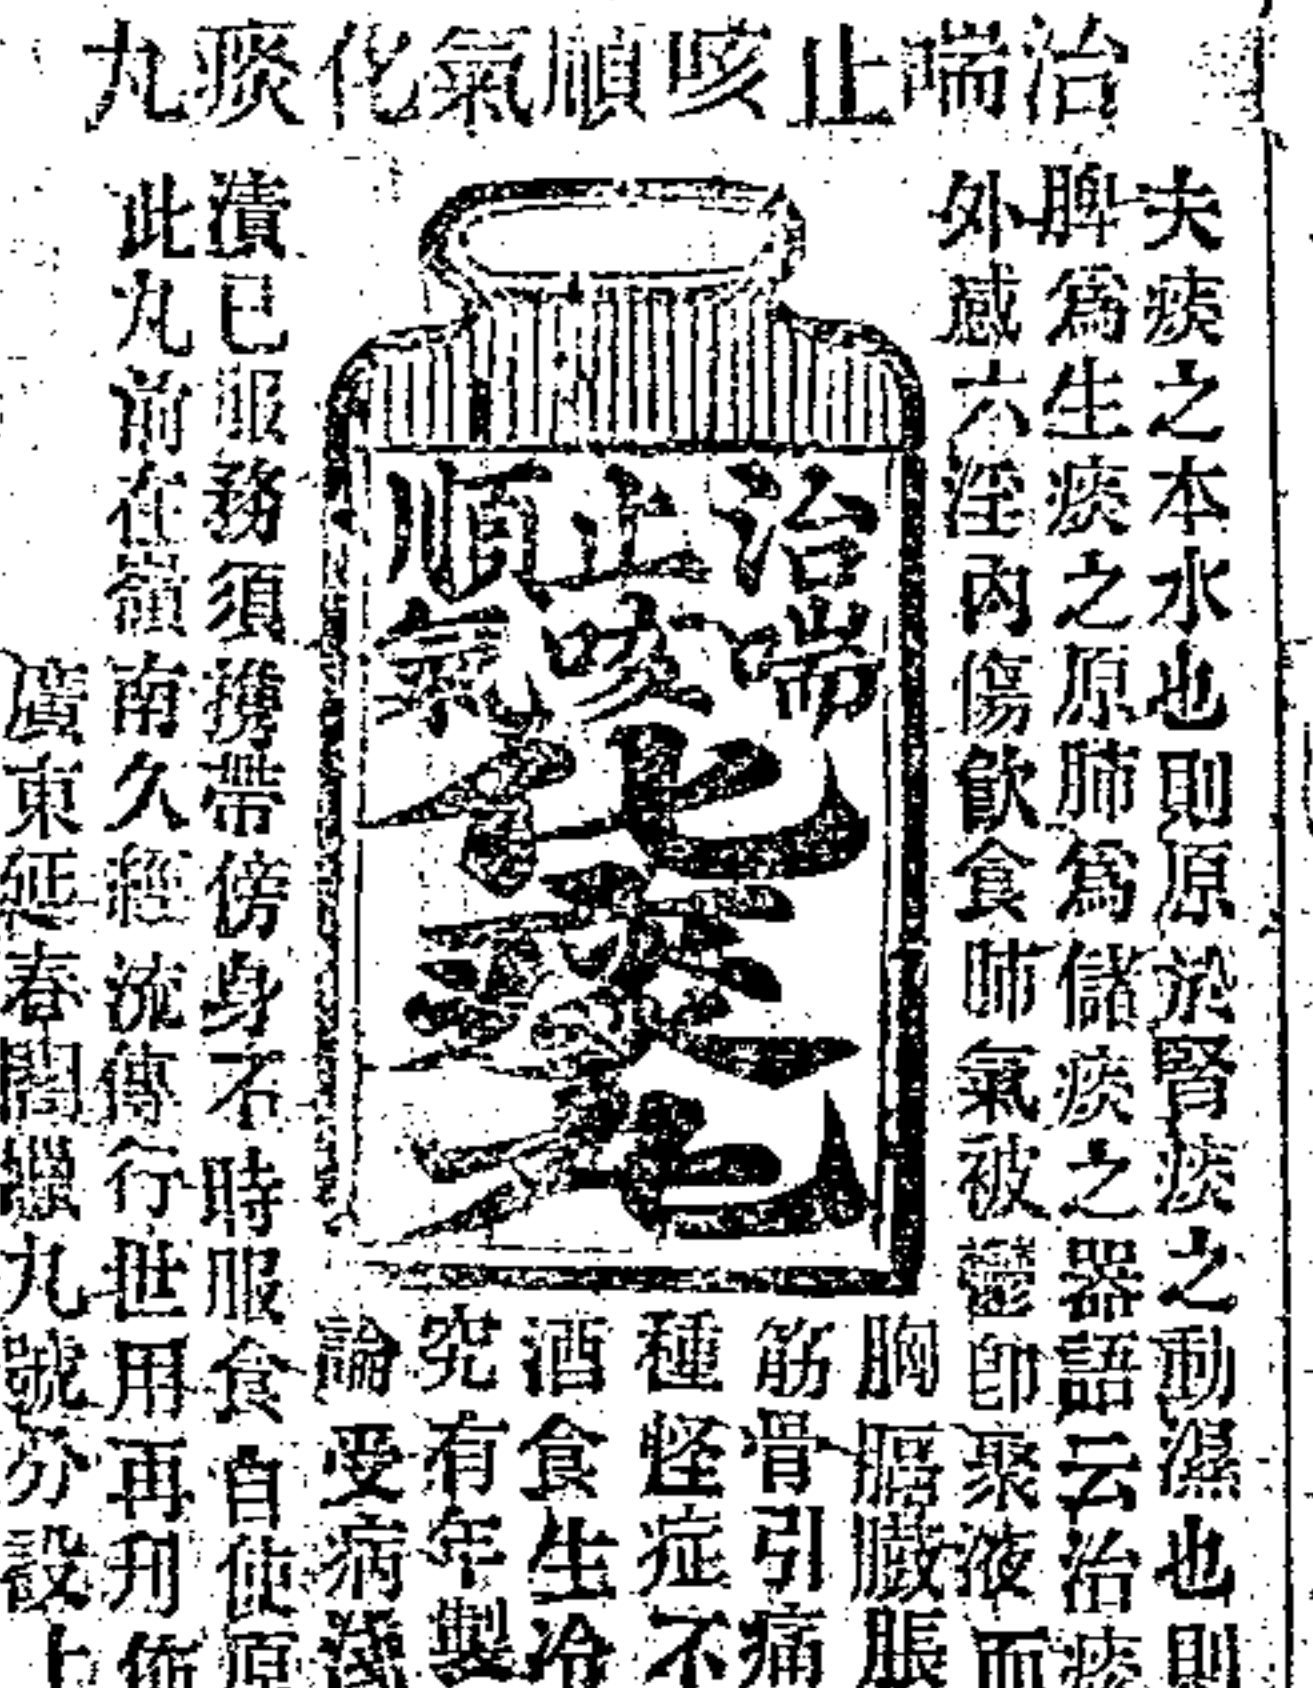 治喘止咳順氣化痰丸
夫痰之本水也則原於腎痰之動濕也則
脾爲生痰之原肺爲儲痰之器語云治痰
外感六淫內傷飲食肺氣被鬱卽聚液而
治喘
止咳
順氣
化痰丸
胸膈臌脹
筋骨引痛
種怪症不
酒食生冷
究有年製
論受病淺
漬已服務須攜帶傍身不時服食自使原
此丸前在嶺南久經流傳行世用再刋佈
廣東延春閣蠟丸號分設上